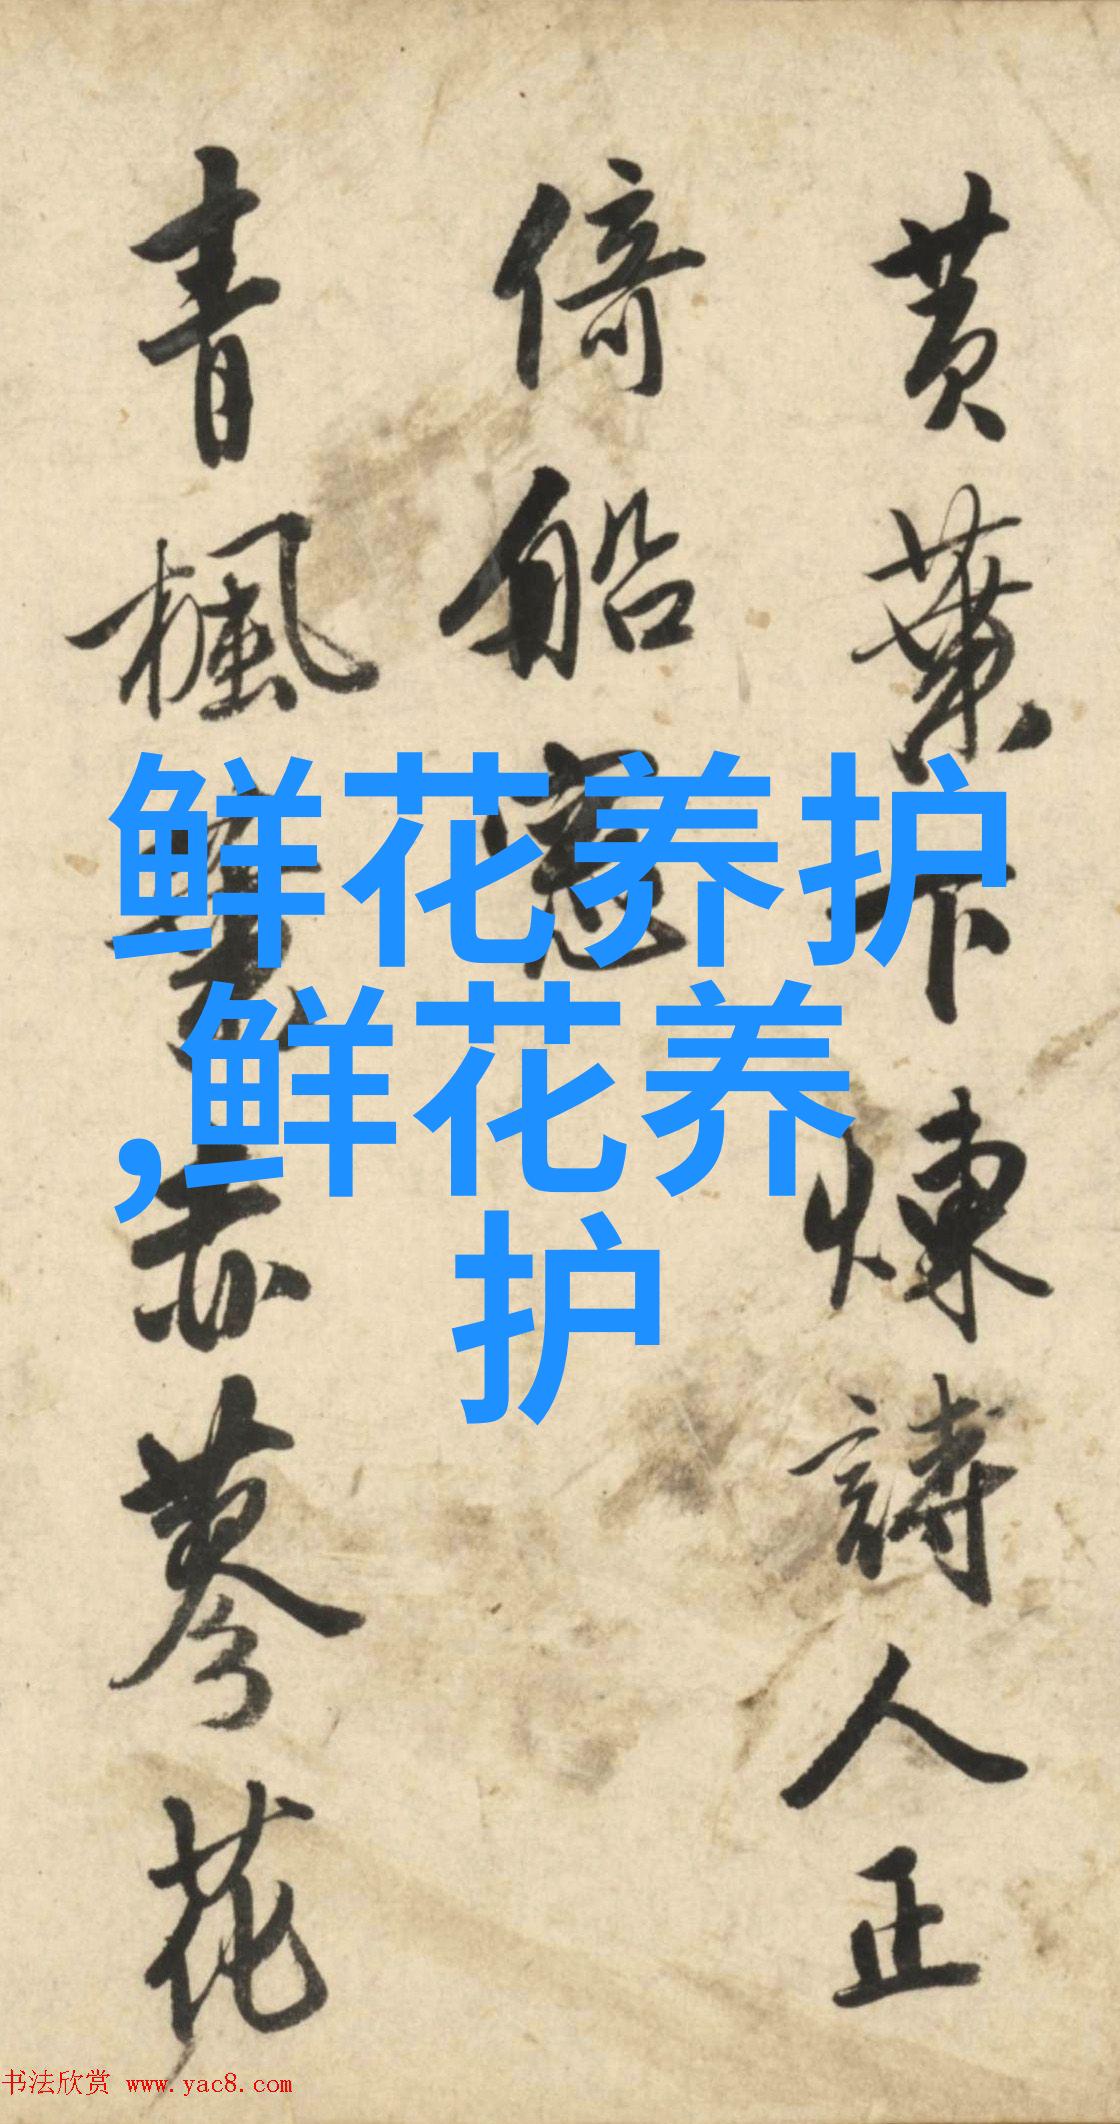 黄葉下煉詩人正
倚船窓
青楓 赤葊花
鲜花养护
,鲜花养
护
书法欣赏 www.yac8.com